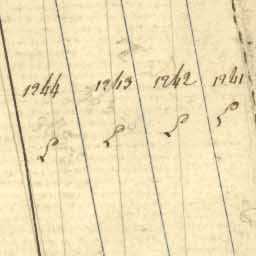 1244 1243 1242 1241